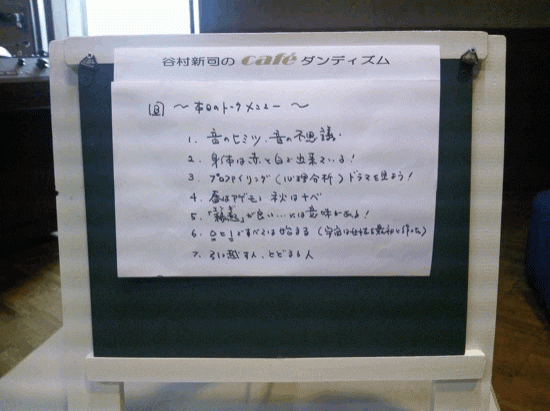 谷村新司の café ダンディズム
〜本日のトークメニュー〜
1. 音のヒミツ、音の不思議・
2. 身体は赤と白で出来ている!
3. プロファイリング(心理分析)ドラマを見よう!
4. 春はアゲモノ 秋はナベ
5. 「縁起」が良い…には意味がある!
6. 音と!ですべてははじまる(宇宙は女性を最初に作った)
7. 引っ越す人、とどまる人